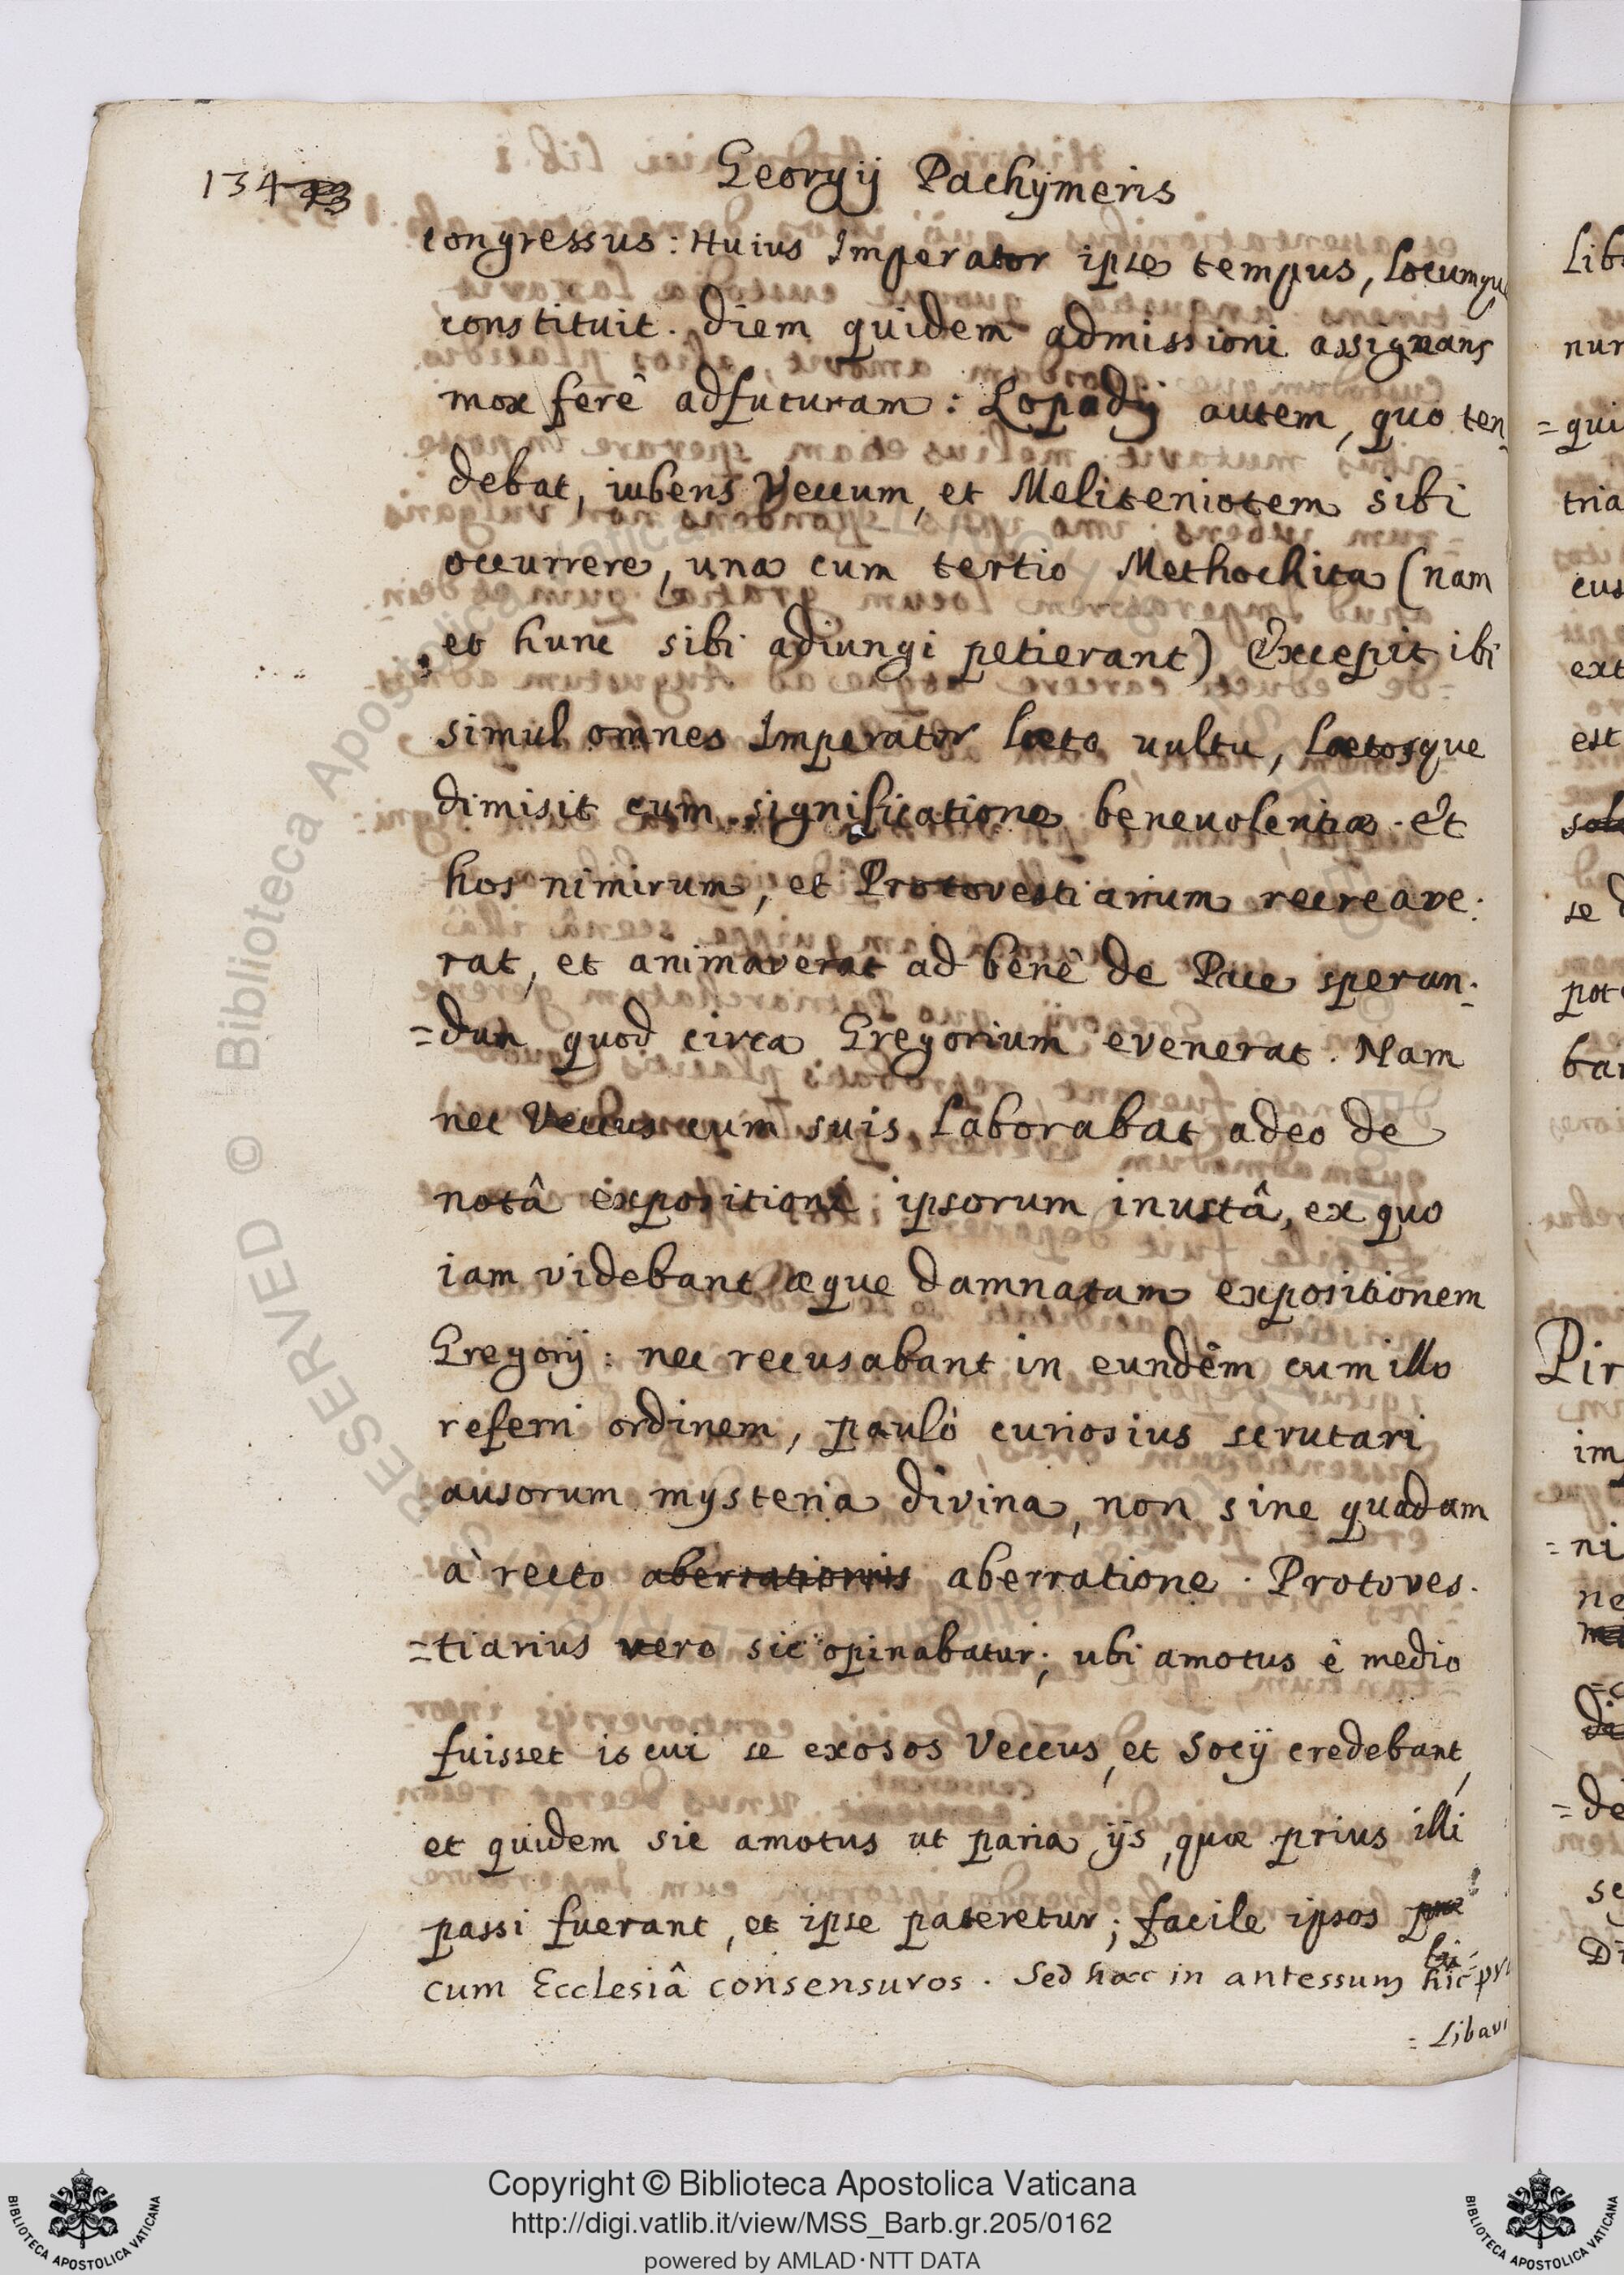 134 73
Georgij Pachymeris
congressus: Huius Imperator ipse tempus, locumqu
constituit. Diem quidem admissioni assignans
mox ferê adfuturam: Lopadij autem, quo ten-
debat, iubens Veccum, et Meliteniotem sibi
occurrere, una cum tertio Methochita (nam
et hunc sibi adiungi petierant) Excepit ibi
simul omnes Imperator læto uultu, lætosque
dimisit cum significatione beneuolentiæ. Et
hos nimirum, et Protovestiarium recreave:
rat, et animaverat ad benê de Pace speran:
=dum quod circa Gregorium evenerat. Nam
nec Veccus cum suis laborabat adeo de
notâ expositioni ipsorum inustâ, ex quo
iam videbant æque damnatam expositionem
Gregorij: nec recusabant in eundêm cum illo
referri ordinem, paulò curiosius scrutari
ausorum mysteria divina, non sine quadam
à recto aberrationis aberratione. Protoves.
=tiarius vero sic opinabatur; ubi amotus ê medio
fuisset is cui se exosos Veccus, et Socij credebant,
et quidem sic amotus ut paria ijs, quæ prius illi
passi fuerant, et ipse pateretur; facile ipsos
cum Ecclesiâ consensuros. Sed hæc in antessum hic
= Libavi
Copyright © Biblioteca Apostolica Vaticana
http://digi.vatlib.it/view/MSS_Barb.gr.205/0162
powered by AMLAD·NTT DATA